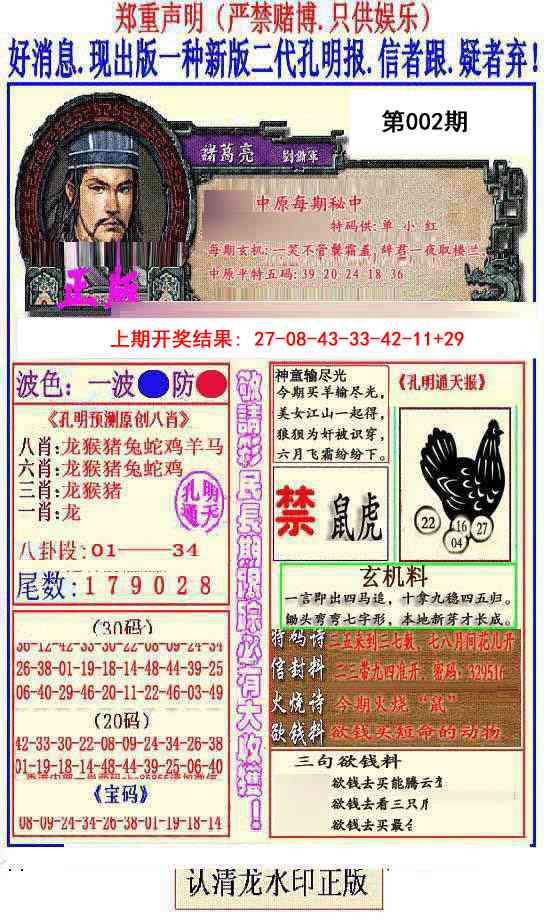 郑重声明（严禁赌博.只供娱乐）
好消息.现出版一种新版二代孔明报.信者跟.疑者弃!
第002期
諸葛亮
中原每期秘中
特码供: 单 小 红
每期玄机: 一笑不管鬓霜盖, 辞君一夜取楼兰.
中原平特五码: 39 20 24 18 36
正版
上期开奖结果: 27-08-43-33-42-11+29
波色: 一波 防
《孔明预测原创八肖》
八肖:龙猴猪兔蛇鸡羊马
六肖:龙猴猪兔蛇鸡
三肖:龙猴猪
一肖:龙
孔明
通天
八卦段:01——34
尾数:179028
(30码)
30-12-42-33-30-22-08-09-24-34
26-38-01-19-18-14-48-44-39-25
06-40-29-46-20-11-22-46-03-49
(20码)
42-33-30-22-08-09-24-34-26-38
01-19-18-14-48-44-39-25-06-40
《宝码》
08-09-24-34-26-38-01-19-18-14
敬請彩民長期跟踪必有大收獲！
神童输尽光
今期买羊输尽光,
美女江山一起得,
狼狈为奸被识穿,
六月飞霜纷纷下。
《孔明通天报》
禁 鼠虎
22 16 27
04
玄机料
一言即出四马追，十拿九稳四五归。
锄头弯弯七字形，本地新芽才长成。
特码诗 三五未到三七数, 七八月同花儿开
信封料 二三带九四准开: 密码: 329516
火烧诗 今期火烧“鼠”
欲钱料 欲钱买短命的动物.
三句欲钱料
欲钱去买能腾云
欲钱去看三只
欲钱去买最
认清龙水印正版